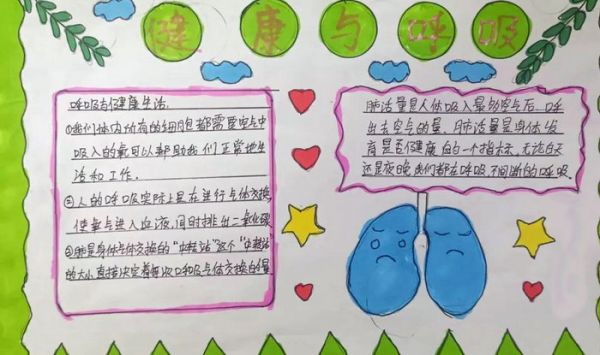 健康与呼吸
呼吸与健康生活.
①我们体内所有的细胞都需要空气中
吸入的氧可以帮助我们正常地生
活和工作.
②人的呼吸实际上是在进行气体交换,
使氧气进入血液,同时排出二氧化碳
③肺是身体气体交换的“中转站”这个“中转站”
的大小直接决定着每次呼吸气体交换的量
肺活量是人体吸入最多空气后.呼
出去空气的量.肺活量是身体发
育是否健康的一个指标,无论白天
还是夜晚我们都在呼吸不间断的呼吸.